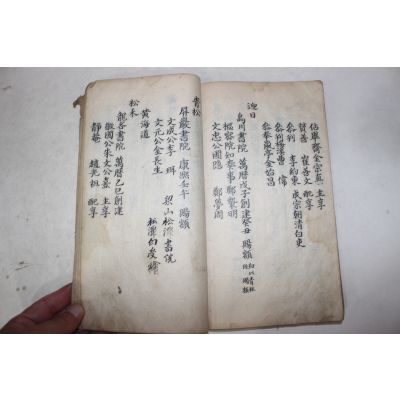 佔畢齋金宗直 主享
贊善 崔善文 配享
參判 李約東 成宗朝淸白吏
參判楊澤曺 偉
參奉嵐亭金始昌
迎日
烏川書院 萬曆戊子創建癸丑 賜額
樞密院知奏事 鄭襲明
文忠公圃隱 鄭夢周
靑松
屛巖書院 康熙壬午 賜額
文成公李 珥
文元公金長生
黃海道
松禾
龍巖書院 萬曆乙巳創建
徽國公朱文公熹 主享
靜菴 趙光祖 配享